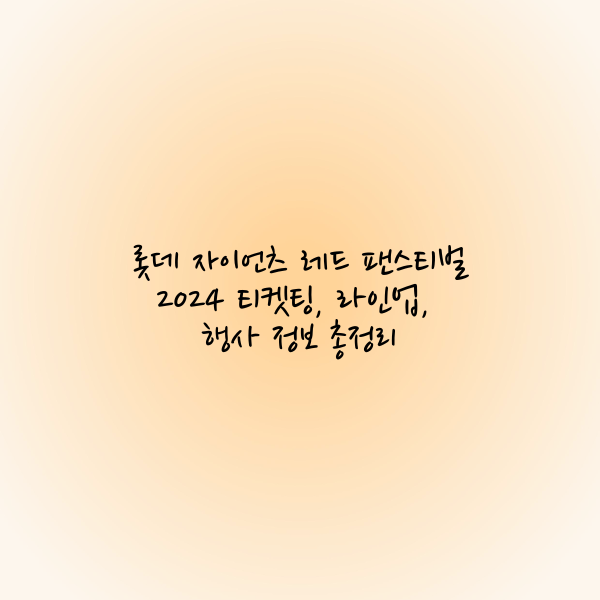 롯데 자이언츠 레드 팬스티벌
2024 티켓팅, 라인업,
행사 정보 총정리